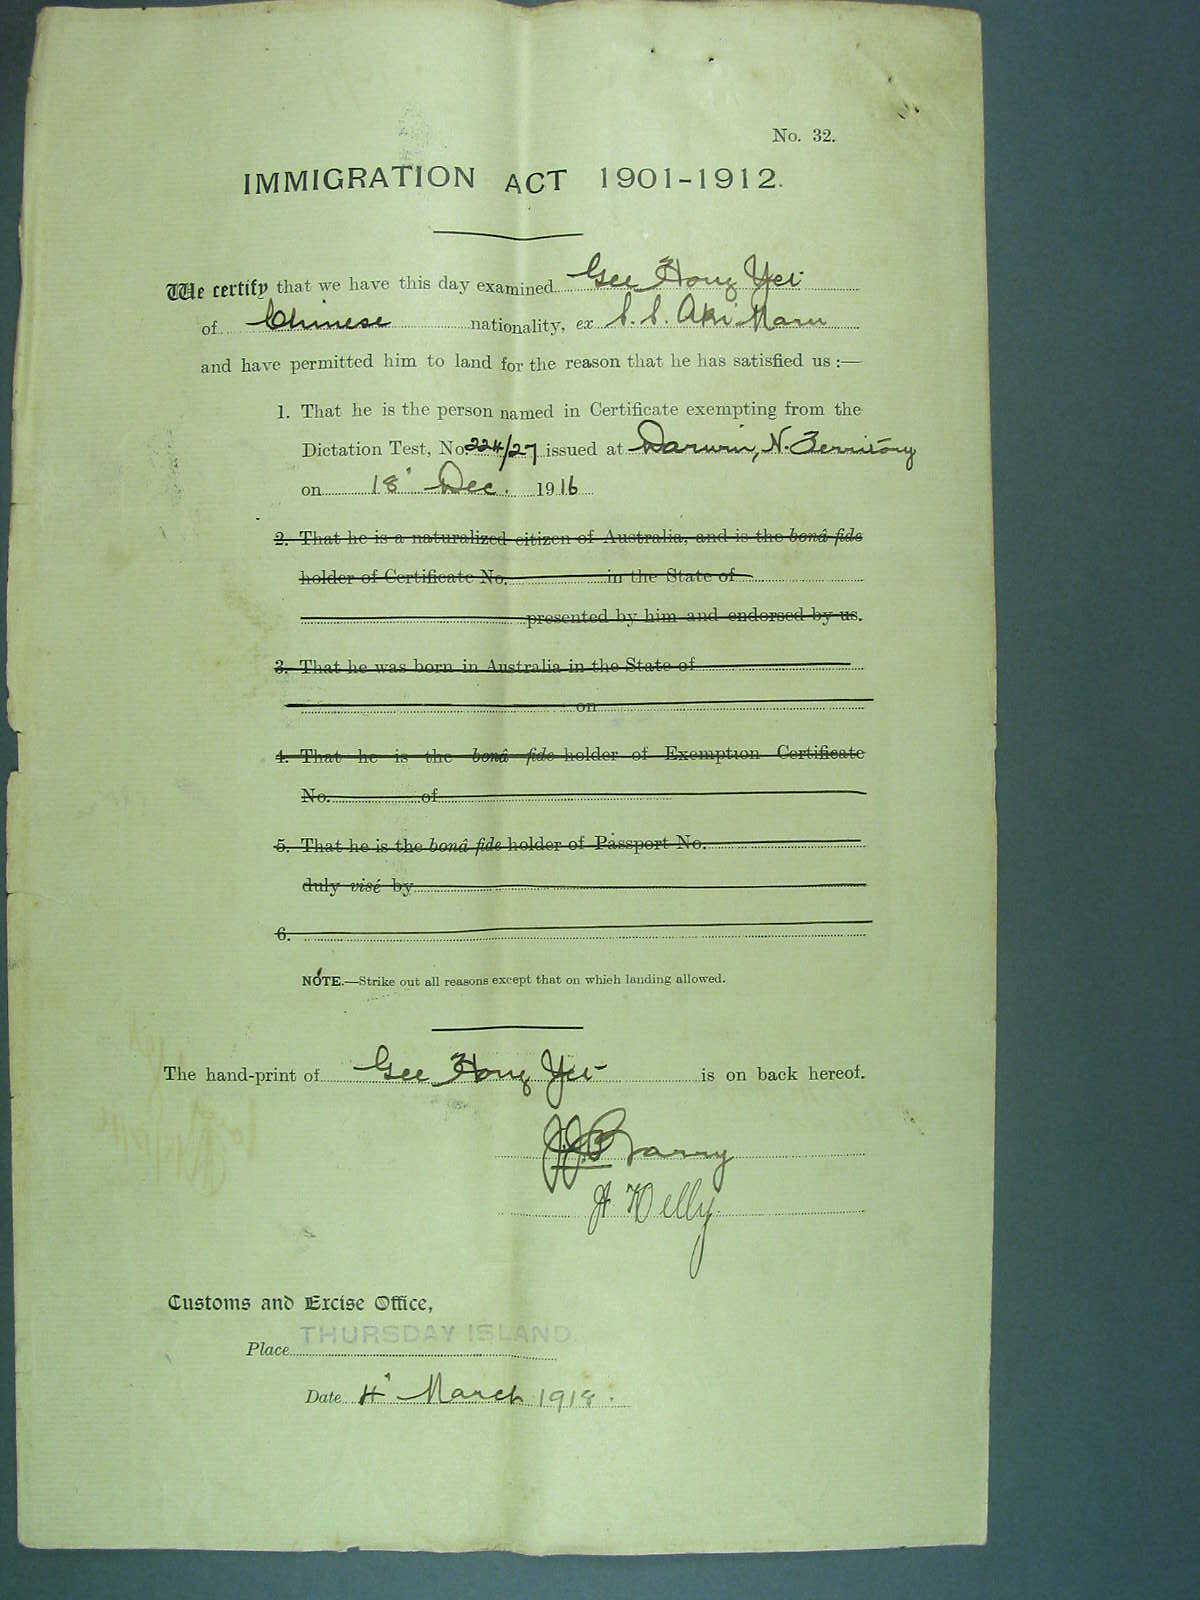 No. 32.
IMMIGRATION ACT 1901-1912.
We certify that we have this day examined Gee Hong Yet
of Chinese nationality, ex S.S. Aki Maru
and have permitted him to land for the reason that he has satisfied us :—
1. That he is the person named in Certificate exempting from the
Dictation Test, No 224/27 issued at Darwin, N. Territory
on 18' Dec. 1916
2. That he is a naturalized citizen of Australia, and is the bonâ fide
holder of Certificate No. in the State of
presented by him and endorsed by us.
3. That he was born in Australia in the State of
on
4. That he is the bonâ fide holder of Exemption Certificate
No. of
5. That he is the bonâ fide holder of Passport No.
duly visé by
6.
NOTE.—Strike out all reasons except that on which landing allowed.
The hand-print of Gee Hong Yet is on back hereof.
Customs and Excise Office,
Place THURSDAY ISLAND.
Date 4' March 1918.